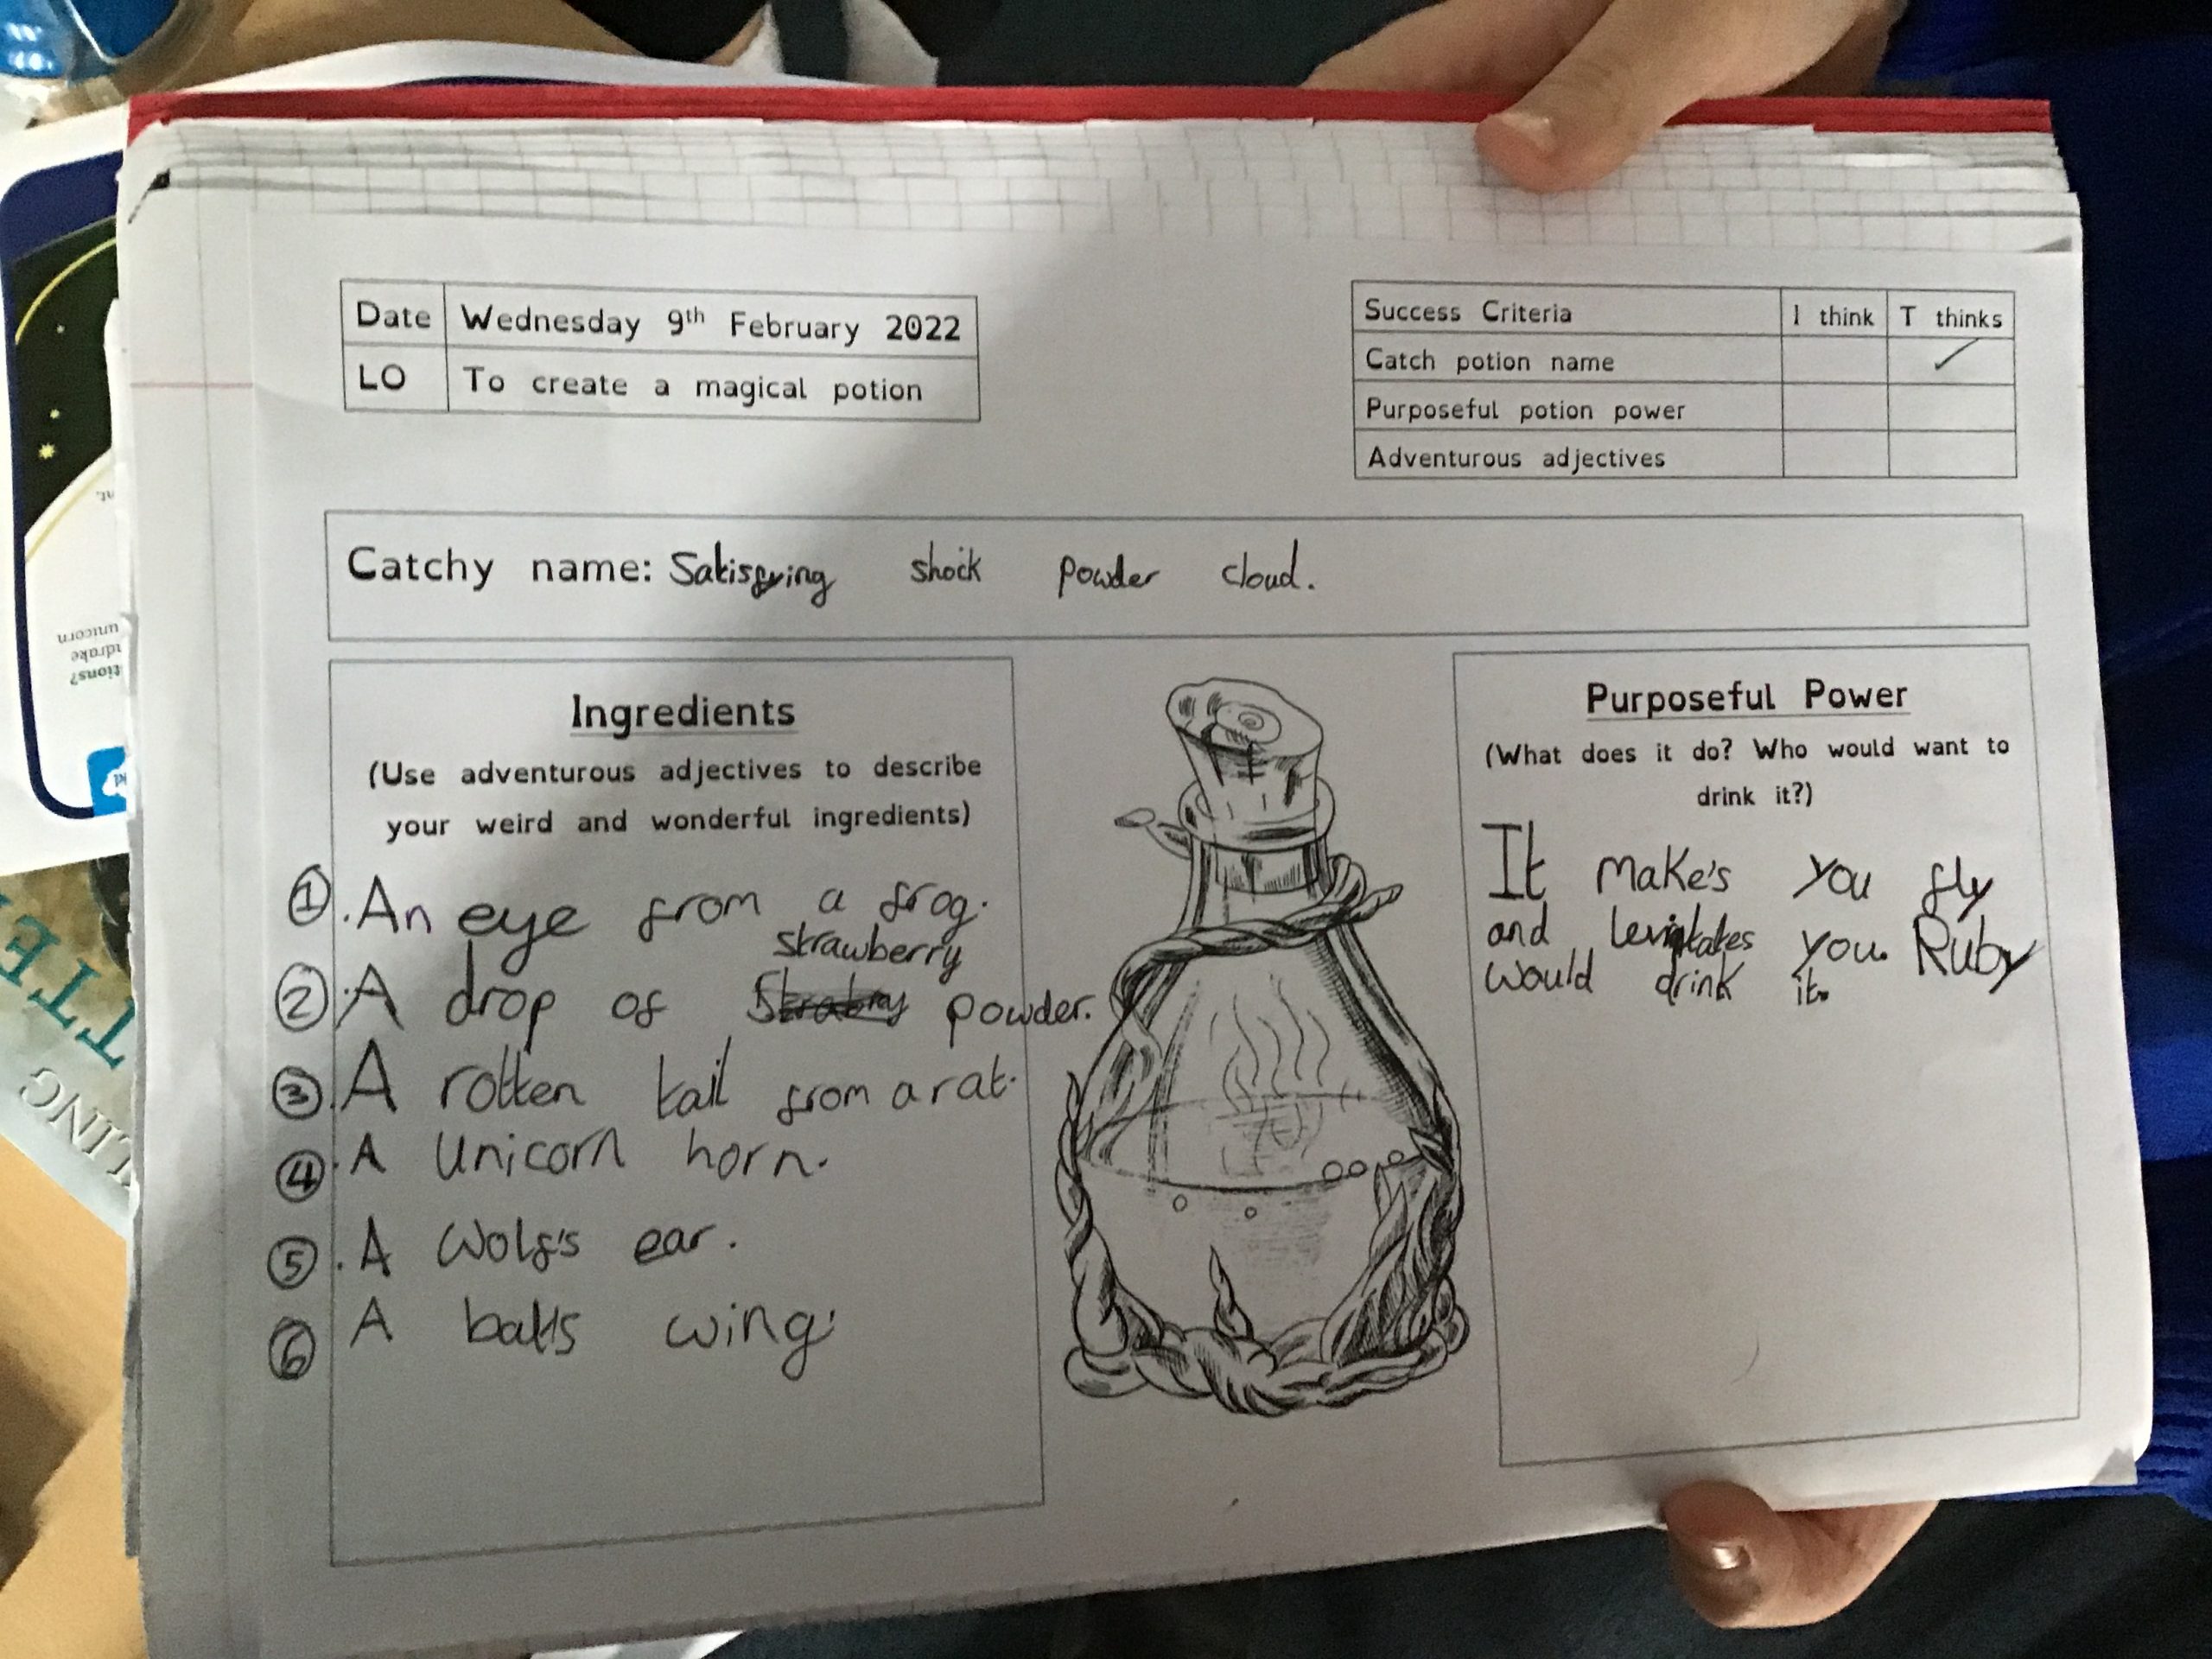 Date Wednesday 9th February 2022
LO To create a magical potion
Success Criteria I think T thinks
Catch potion name ✓
Purposeful potion power
Adventurous adjectives
Catchy name: Satisfying shock powder cloud.
Ingredients
(Use adventurous adjectives to describe
your weird and wonderful ingredients)
① . An eye from a frog.
strawberry
② . A drop of powder.
③ . A rotten tail from a rat.
④ . A unicorn horn.
⑤ . A Wolf's ear.
⑥ A bat's wing.
Purposeful Power
(What does it do? Who would want to
drink it?)
It Make's you fly
and levitates you. Ruby
would drink it.
unicorn